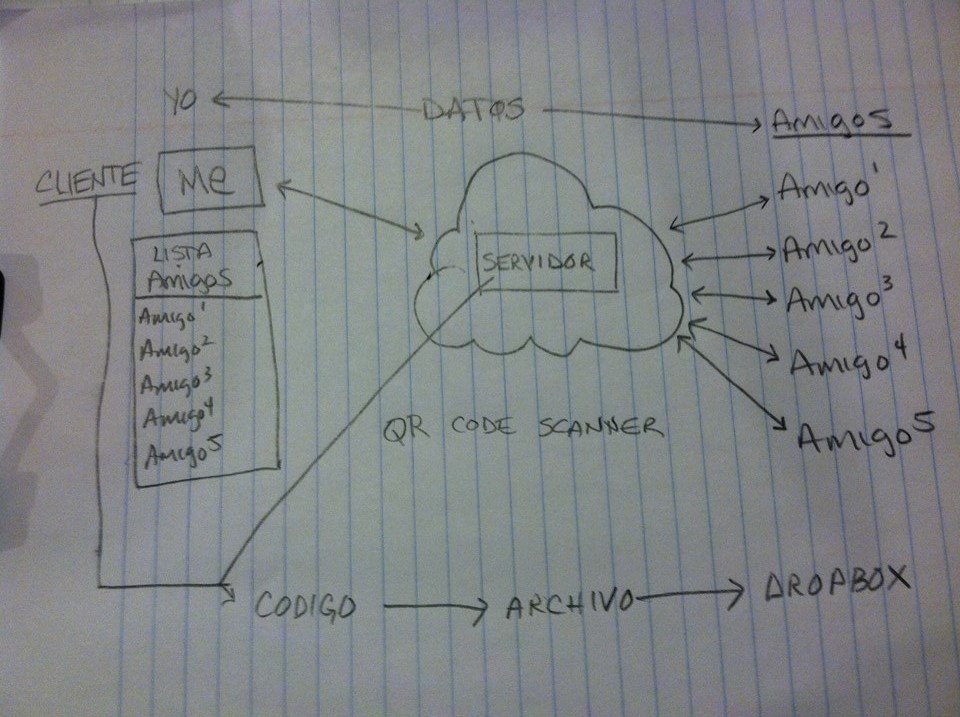 YO DATOS Amigos
CLIENTE
ME
LISTA
Amigos
Amigo1
Amigo2
Amigo3
Amigo4
Amigo5
SERVIDOR
Amigo1
Amigo2
Amigo3
Amigo4
Amigo5
QR CODE SCANNER
CODIGO ARCHIVO DROPBOX